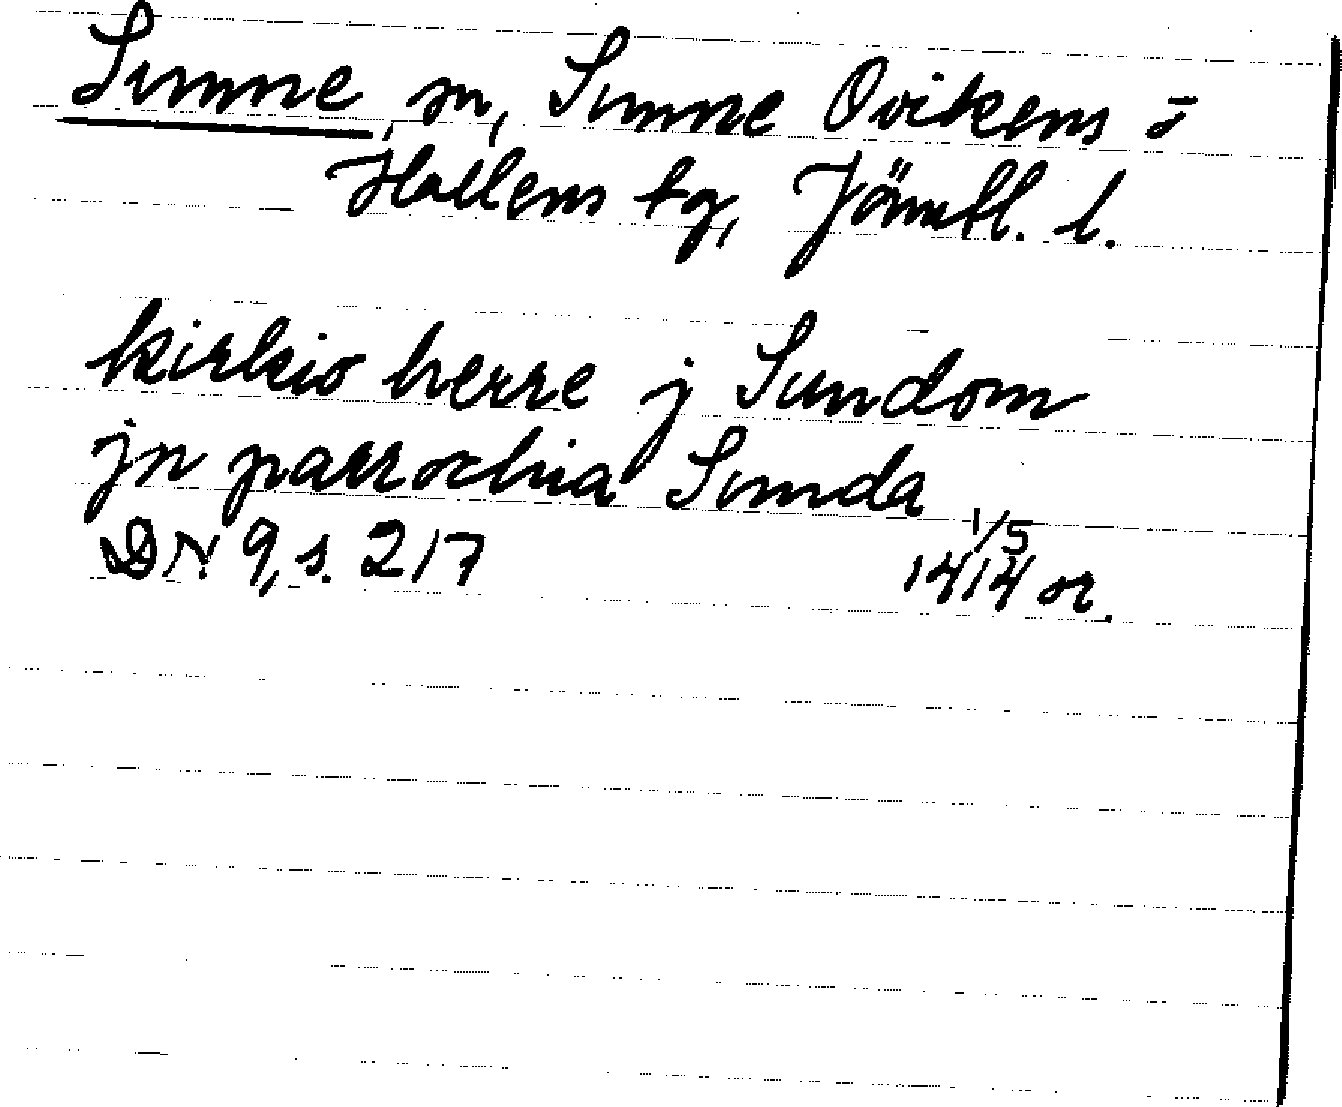 Sunne, sn, Sunne Ovikens o
Hallens tg, Jämtl. l.
kirkio herre j Sundom
jn parrochia Sunda
DN 9, s. 217 1/5 1414 or.